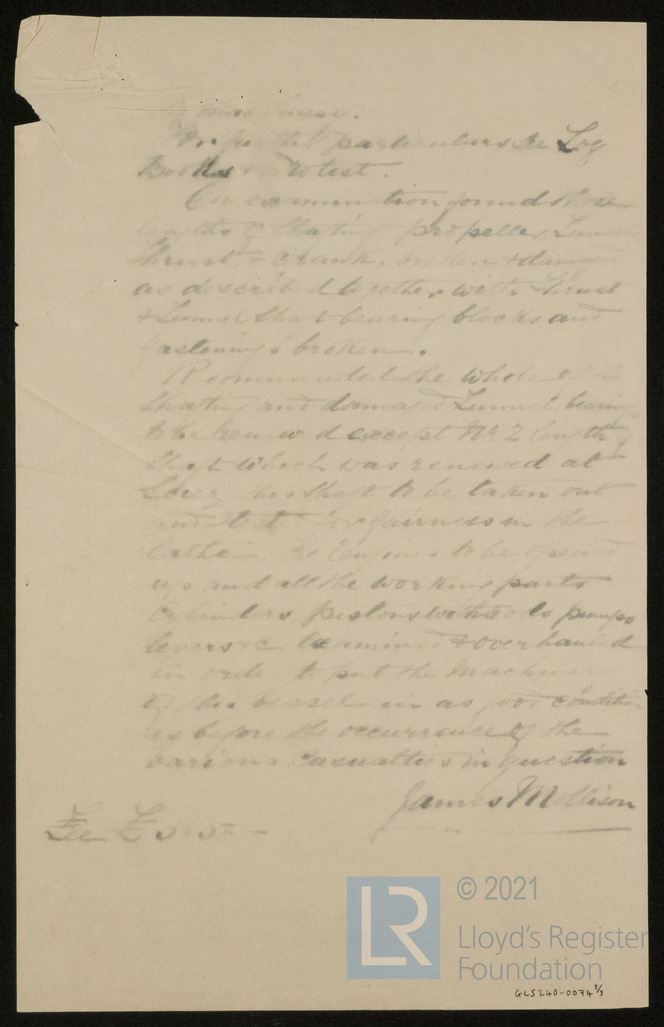 machinery.
For further particulars see Log
Books & Protest.
On examination found three
lengths of Shafting, propeller, Tunnel
thrust & crank, broken & damaged
as described together with Thrust
& Tunnel Shaft bearing blocks and
fastenings broken.
Recommended the whole of the
Shafting and damaged Tunnel bearing
to be renewed except No 2 length of
Shaft which was renewed at
this Shaft to be taken out
and tested for fairness in the
Lathe. The Engines to be opened
up and all the working parts
cylinders pistons with rods pumps
levers &c Examined & overhauled
in order to put the Machinery
of this vessel in as good condition
as before the occurrence of the
various casualties in question
James Mollison
Fee £
© 2021
LR
Lloyd's Register
Foundation
GLS240-0074 3/3